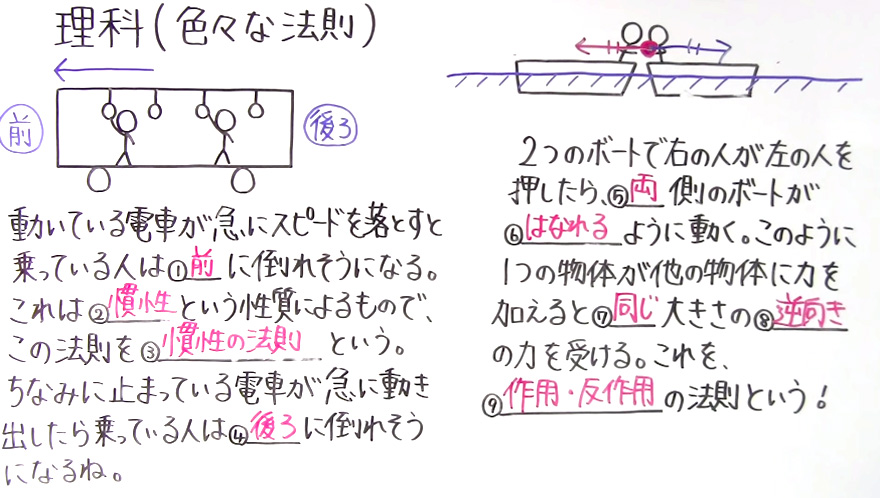 理科(色々な法則)
前
後ろ
動いている電車が急にスピードを落とすと
乗っている人は①前に倒れそうになる。
これは②慣性という性質によるもので、
この法則を③慣性の法則という。
ちなみに止まっている電車が急に動き
出したら乗っている人は④後ろに倒れそう
になるね。
2つのボートで右の人が左の人を
押したら、⑤両側のボートが
⑥はなれるように動く。このように
1つの物体が他の物体に力を
加えると⑦同じ大きさの⑧逆向き
の力を受ける。これを、
⑨作用・反作用の法則という!